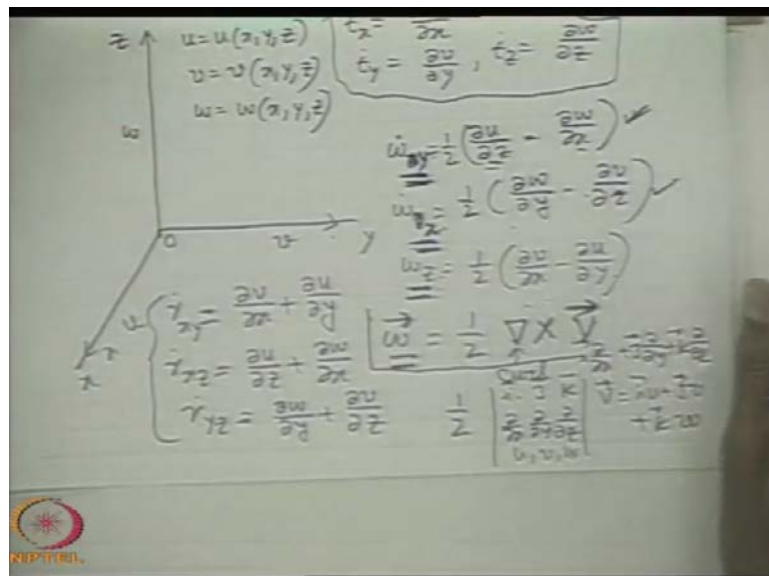 z
u = u(x, y, z)
v = v(x, y, z)
w = w(x, y, z)
w
ε̇x = ∂u/∂x
ε̇y = ∂v/∂y , ε̇z = ∂w/∂z
ω̇y = 1/2 (∂u/∂z - ∂w/∂x) ✓
ω̇x = 1/2 (∂w/∂y - ∂v/∂z) ✓
ω̇z = 1/2 (∂v/∂x - ∂u/∂y)
O
v
y
u
x
γ̇xy = ∂v/∂x + ∂u/∂y
γ̇xz = ∂u/∂z + ∂w/∂x
γ̇yz = ∂w/∂y + ∂v/∂z
ω⃗ = 1/2 ∇ × V⃗
1/2 | i j k |
∂/∂x ∂/∂y ∂/∂z
u, v, w
V⃗ = iu + jv
+ kw
NPTEL